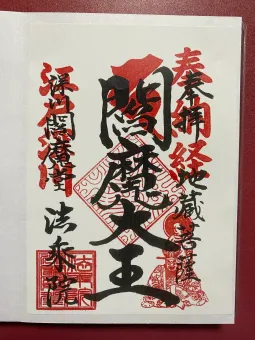 奉拝
奉納経
地蔵菩薩
閻魔大王
深川閻魔堂
法乘院